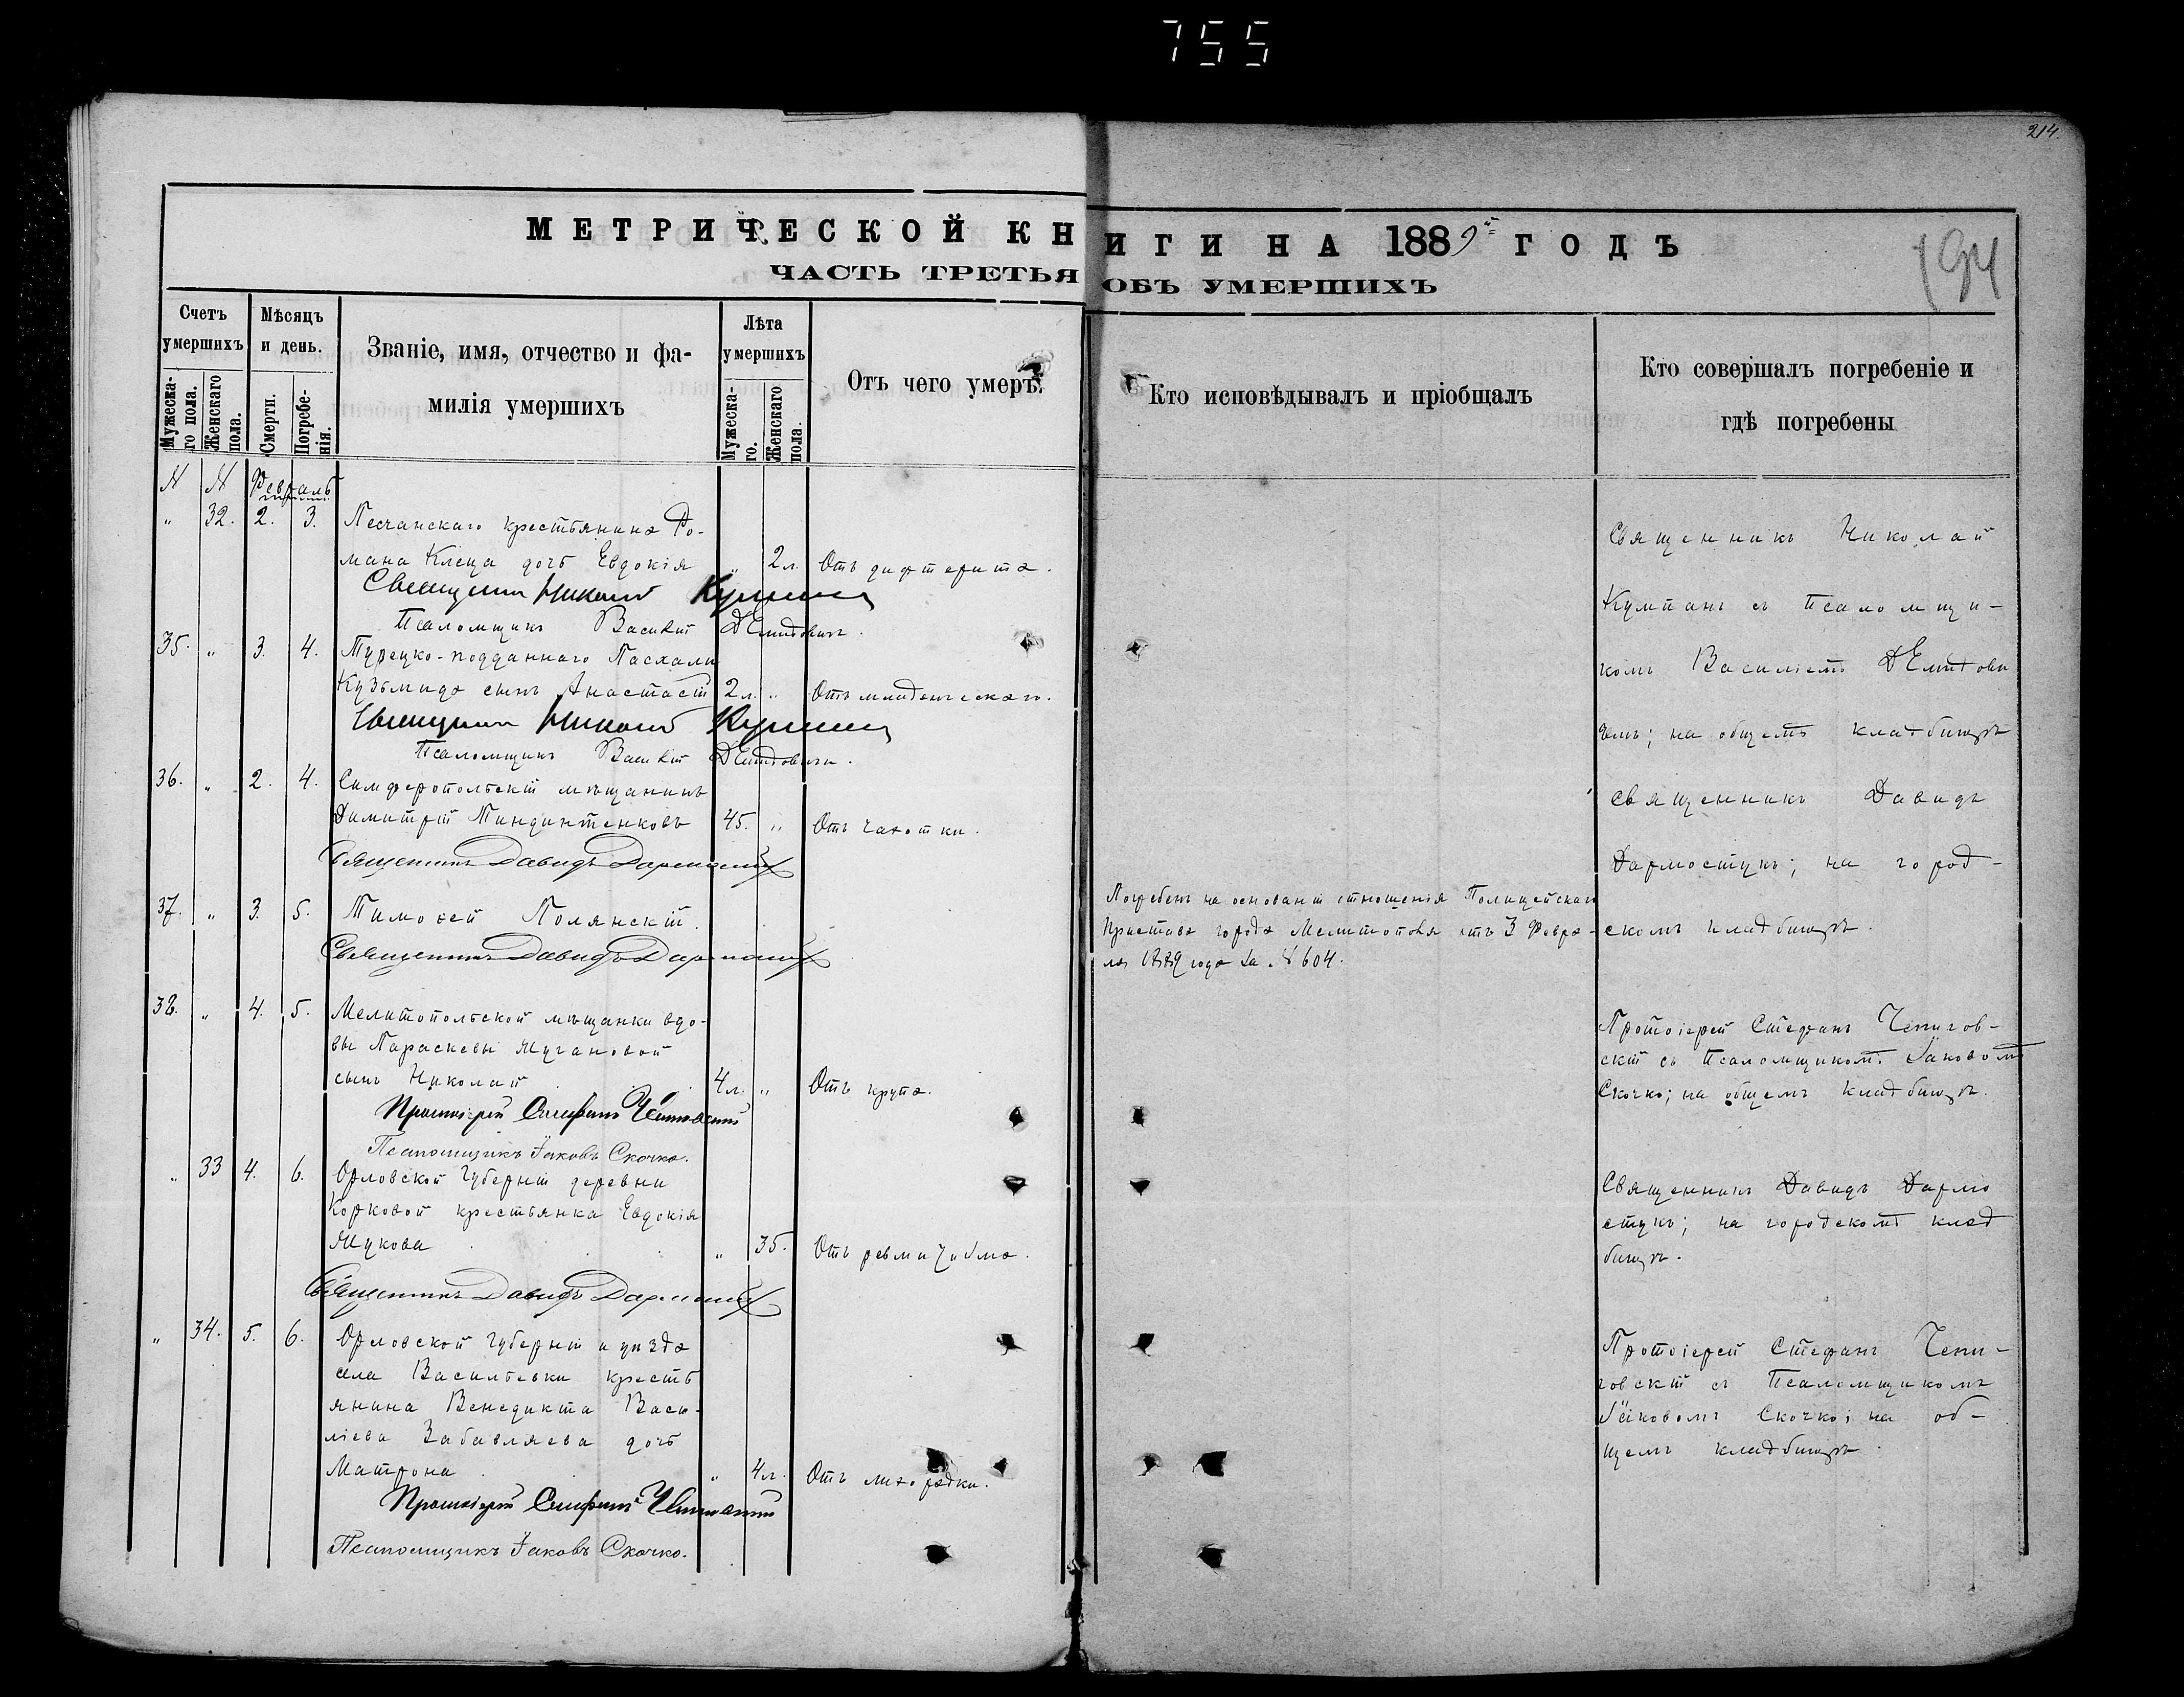 755
214.
194
МЕТРИЧЕСКОЙ КНИГИ НА 1889й ГОДЪ
ЧАСТЬ ТРЕТЬЯ ОБЪ УМЕРШИХЪ
Счетъ умершихъ
Мужескаго пола.
Женскаго пола.
Мѣсяцъ и день.
Смерти.
Погребенія.
Званіе, имя, отчество и фамилія умершихъ
Лѣта умершихъ
Мужескаго.
Женскаго пола.
Отъ чего умеръ.
Кто исповѣдывалъ и пріобщалъ
Кто совершалъ погребеніе и
гдѣ погребены
N N Февраль
" 32. 2. 3. Песчанскаго крестьянина Ро-
мана Клеца дочь Евдокія " 2 л. Отъ дифтерита.
Священникъ Николай
Псаломщикъ Василій
Священникъ Николай
Кумпанъ съ Псаломщи-
комъ Василіемъ
чемъ; на общемъ кладбищѣ
35. " 3. 4. Турецко-подданнаго Пасхали
Кузьмида сынъ Анастасій 2 л. " Отъ младенческаго.
Священникъ Николай
Псаломщикъ Василій
36. " 2. 4. Симферопольскій мѣщанинъ
Димитрій 45. " Отъ чахотки.
Священникъ Давидъ
Священникъ Давидъ
Дармостукъ; на город-
скомъ кладбищѣ.
37. " 3. 5. Тимоѳей Полянскій.
Священникъ Давидъ
Погребенъ на основаніи отношенія Полицейскаго
Пристава города Мелитополя отъ 3 Февра-
ля 1889 года за N 604.
38. " 4. 5. Мелитопольской мѣщанки вдо-
вы Параскевы Мугановой
сынъ Николай 4 л. " Отъ крупа.
Протоіерей Стефанъ
Псаломщикъ Іаковъ Скочко.
Протоіерей Стефанъ Чепигов-
скій съ Псаломщикомъ Іаковомъ
Скочко; на общемъ кладбищѣ.
" 33 4. 6. Орловской Губерніи деревни
Корковой крестьянка Евдокія
Жукова " 35. Отъ ревматизма.
Священникъ Давидъ
Священникъ Давидъ Дармо
стукъ; на городскомъ клад
бищѣ.
" 34. 5. 6. Орловской Губерніи и уѣзда
села Васильевки кресть
янина Венедикта Васи-
ліева Забавляева дочь
Матрона " 4 л. Отъ лихорадки.
Протоіерей Стефанъ
Псаломщикъ Іаковъ Скочко.
Протоіерей Стефанъ Чепи-
говскій съ Псаломщикомъ
Іаковомъ Скочко; на об-
щемъ кладбищѣ.